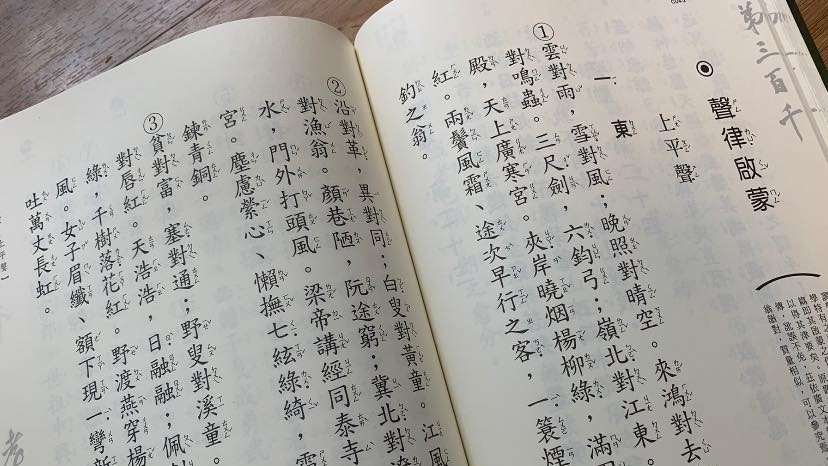 三百千
◉ 聲律啟蒙
上平聲
一、東
①雲對雨，雪對風；晚照對晴空。來鴻對去
對鳴蟲。三尺劍，六鈞弓；嶺北對江東。
殿，天上廣寒宮。夾岸曉烟楊柳綠，滿
紅。兩鬢風霜、途次早行之客，一蓑煙
釣之翁。
②沿對革，異對同；白叟對黃童。江風
對漁翁。顏巷陋，阮途窮；冀北對遼
水，門外打頭風。梁帝講經同泰寺
宮。塵慮縈心、懶撫七絃綠綺，
鍊青銅。
③貧對富，塞對通；野叟對溪童。
對唇紅。天浩浩，日融融；佩
綠，千樹落花紅。野渡燕穿楊
風。女子眉纖、額下現一彎新
吐萬丈長虹。